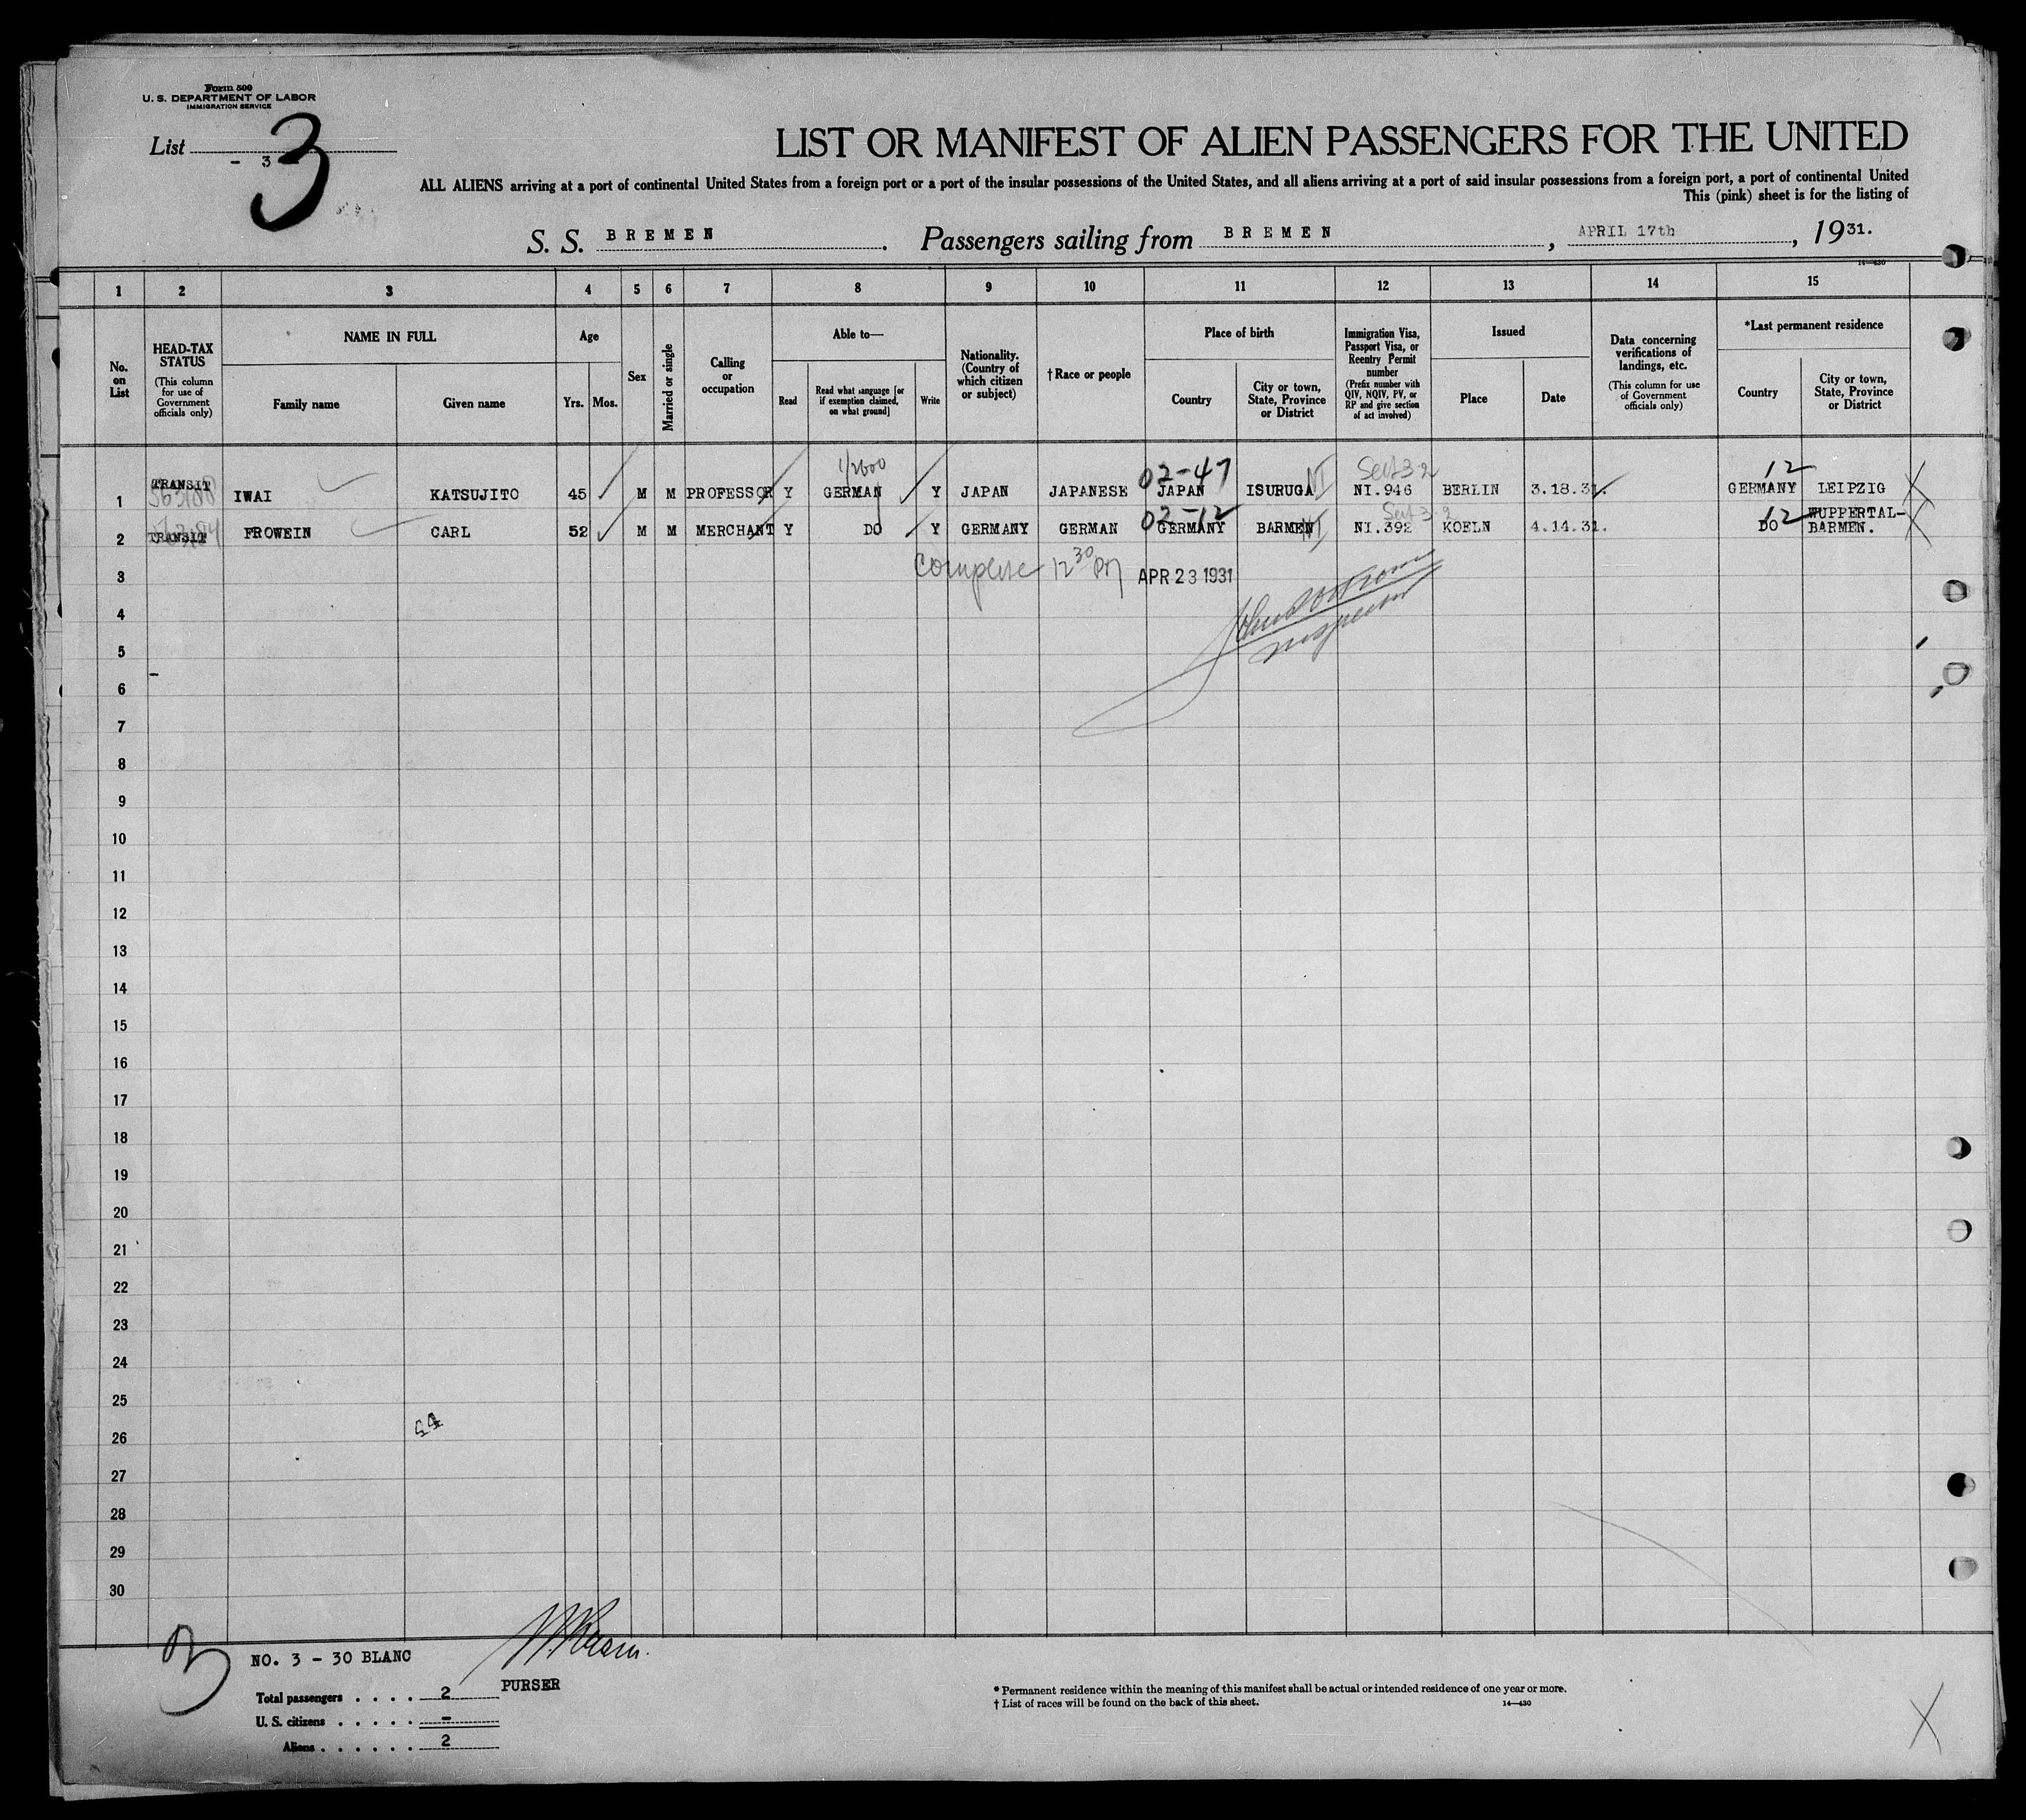 Form 500
U. S. DEPARTMENT OF LABOR
IMMIGRATION SERVICE
List
- 3
3
LIST OR MANIFEST OF ALIEN PASSENGERS FOR THE UNITED
ALL ALIENS arriving at a port of continental United States from a foreign port or a port of the insular possessions of the United States, and all aliens arriving at a port of said insular possessions from a foreign port, a port of continental United
This (pink) sheet is for the listing of
S. S. BREMEN. Passengers sailing from BREMEN, APRIL 17th, 1931.
14-430
1 2 3 4 5 6 7 8 9 10 11 12 13 14 15
No. on List
HEAD-TAX STATUS
(This column for use of Government officials only)
NAME IN FULL
Family name
Given name
Age
Yrs.
Mos.
Sex
Married or single
Calling or occupation
Able to—
Read
Read what language [or if exemption claimed, on what ground]
Write
Nationality. (Country of which citizen or subject)
† Race or people
Place of birth
Country
City or town, State, Province or District
Immigration Visa, Passport Visa, or Reentry Permit number
(Prefix number with QIV, NQIV, PV, or RP and give section of act involved)
Issued
Place
Date
Data concerning verifications of landings, etc.
(This column for use of Government officials only)
*Last permanent residence
Country
City or town, State, Province or District
02-47
Sect 3-2
12
1 TRANSIT IWAI KATSUJITO 45 M M PROFESSOR Y GERMAN Y JAPAN JAPANESE JAPAN ISURUGA NI.946 BERLIN 3.18.31. GERMANY LEIPZIG
02-12
Sect 3-2
12
2 TRANSIT FROWEIN CARL 52 M M MERCHANT Y DO Y GERMANY GERMAN GERMANY BARMEN NI.392 KOELN 4.14.31. DO WUPPERTAL-BARMEN.
3 Complete 12 30 PM APR 23 1931
4
Inspector
5
6
7
8
9
10
11
12
13
14
15
16
17
18
19
20
21
22
23
24
25
26
27
28
29
30
3
NO. 3 - 30 BLANC
PURSER
Total passengers . . . . 2
U. S. citizens . . . . . -
Aliens . . . . . . 2
* Permanent residence within the meaning of this manifest shall be actual or intended residence of one year or more.
† List of races will be found on the back of this sheet.
14-430